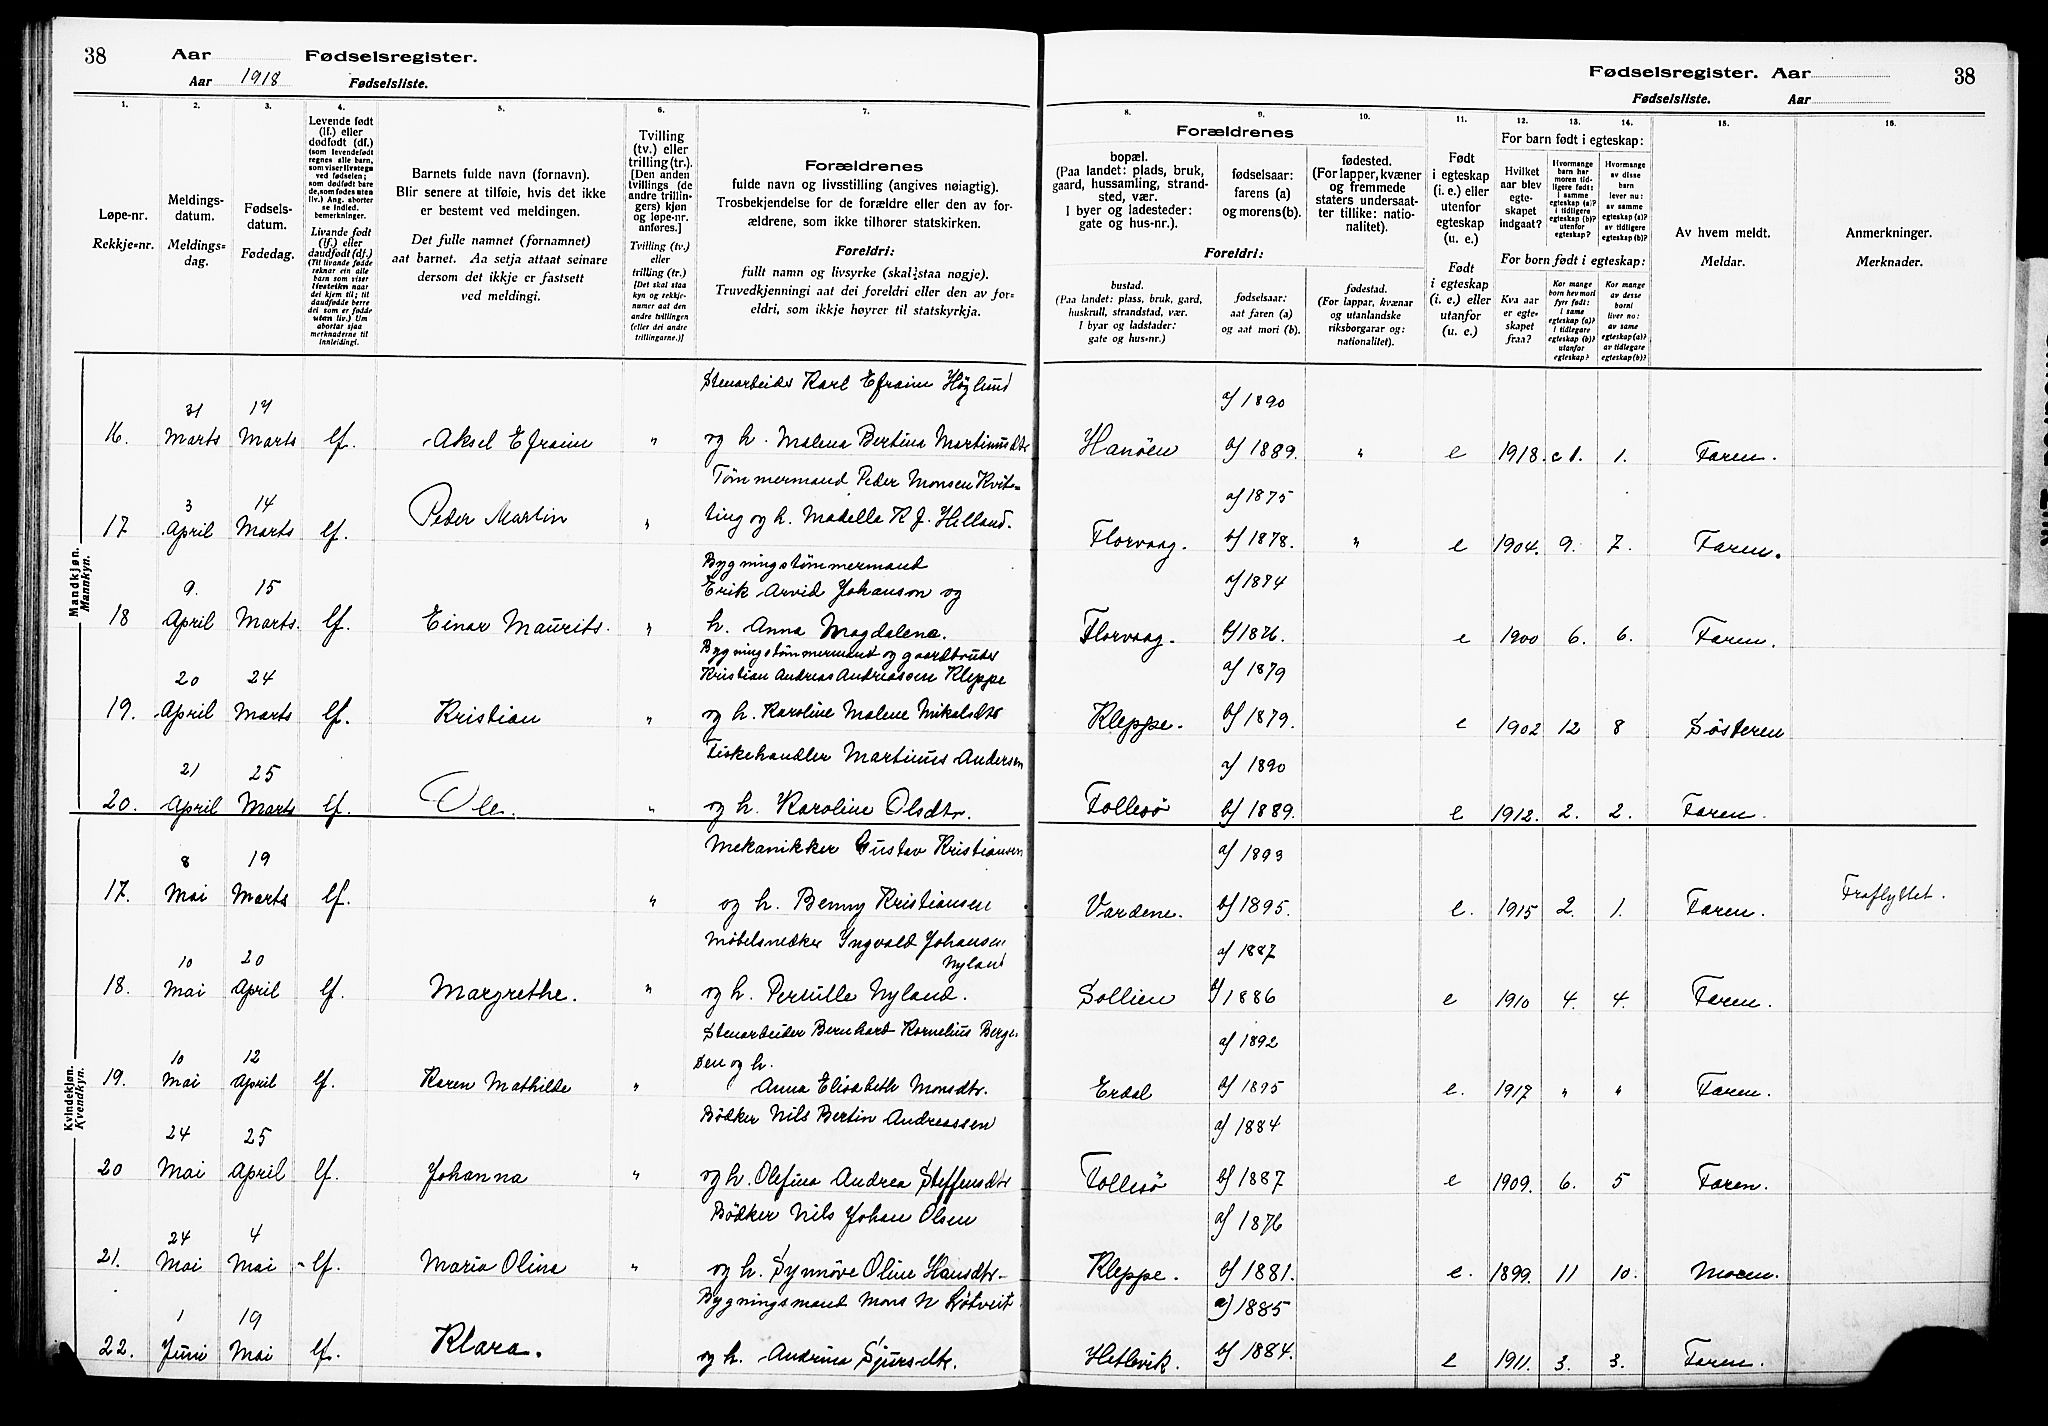 38 Aar Fødselsregister.
Aar 1918 Fødselsliste.
Fødselsregister. Aar 38
Fødselsliste. Aar
1. 2. 3. 4. 5. 6. 7. 8. 9. 10. 11. 12. 13. 14. 15. 16.
Løpe-nr.
Rekkje-nr.
Meldings-
datum.
Meldings-
dag.
Fødsels-
datum.
Fødedag.
Levende født
(lf.) eller
dødfødt (df.)
(som levendefødt
regnes alle barn,
som viser livstegn
ved fødselen;
som dødfødt bare
de, som fødes uten
liv.) Ang. aborter
se indled.
bemerkninger.
Livande født
(lf.) eller
daudfødt (df.)
(Til livande fødde
reknar ein alle
barn som viser
livsteikn naar
dei kjem til; til
daudfødde berre
dei som er fødde
utan liv.) Um
abortar sjaa
merknaderne til
innleidingi.
Barnets fulde navn (fornavn).
Blir senere at tilføie, hvis det ikke
er bestemt ved meldingen.
Det fulle namnet (fornamnet)
aat barnet. Aa setja attaat seinare
dersom det ikkje er fastsett
ved meldingi.
Tvilling
(tv.) eller
trilling (tr.).
[Den anden
tvillings (de
andre trillin-
gers) kjøn
og løpe-nr.
anføres.]
Tvilling (tv.)
eller
trilling (tr.)
[Det skal staa
kyn og rekkje-
numer aat den
andre tvillingen
(eller dei andre
trillingarne.)]
Forældrenes
fulde navn og livsstilling (angives nøiagtig).
Trosbekjendelse for de forældre eller den av for-
ældrene, som ikke tilhører statskirken.
Foreldri:
fullt namn og livsyrke (skal staa nøgje).
Truvedkjenningi aat dei foreldri eller den av for-
eldri, som ikkje høyrer til statskyrkja.
Forældrenes
bopæl.
(Paa landet: plads, bruk,
gaard, hussamling, strand-
sted, vær.
I byer og ladesteder:
gate og hus-nr.).
fødselsaar:
farens (a)
og morens (b).
fødested.
(For lapper, kvæner
og fremmede
staters undersaat-
ter tillike: natio-
nalitet).
Foreldri:
bustad.
(Paa landet: plass, bruk, gard,
huskrull, strandstad, vær.
I byar og ladstader:
gate og hus-nr.)
fødselsaar:
aat faren (a)
og aat mori (b).
fødestad.
(For lappar, kvænar
og utanlandske
riksborgarar og:
nationalitet).
Født
i egteskap
(i. e.) eller
utenfor
egteskap
(u. e.)
Født
i egteskap
(i. e.) eller
utanfor
(u. e.)
For barn født i egteskap:
Hvilket
aar blev
egte-
skapet
indgaat?
Hvormange
barn har
moren tid-
ligere født:
i samme
egteskap (a)?
i tidligere
egteskap (b)?
utenfor
egteskap?
Hvormange
av disse
barn
lever nu:
av samme
egteskap (a)?
av tidligere
egteskap (b)?
For born født i egteskap:
Kva aar
er egte-
skapet
fraa?
Kor mange
born hev mori
fyrr født:
i same
egteskap (a)?
i tidlegare
egteskap (b)?
utanfor
egteskap?
Kor mange
av desse
borni
liver nu:
av same
egteskap (a)?
av tidlegare
egteskap (b)?
Av hvem meldt.
Meldar.
Anmerkninger.
Merknader.
Mandkjøn.
Mannkyn.
Stenarbeider Karl Efraim Höglund
31 17 a/ 1890
16. Marts Marts lf. Aksel Efraim " og h. Malena Bertina Martinusdtr Hanöen b/ 1889. " e 1918. 1. 1. Faren.
Tömmermand Peder Monsen Kvit-
3 14 a/ 1875
17 April Marts lf. Peder Martin " ting og h. Madella K J. Helland. Florvaag. b/ 1878. " e 1904. 9. 7. Faren.
Bygningstömmermand
9. 15 Erik Arvid Johanson og a/ 1874
18 April Marts. lf. Einar Maurits. " h. Anna Magdalena. Florvaag. b/ 1876. e 1900 6. 6. Faren.
Bygningstömmermand og gaardbruker
20 24 Kristian Andreas Andreassen Kleppe a/ 1879
19. April Marts lf. Kristian " og h. Karoline Malene Mikalsdtr Kleppe. b/ 1879. e 1902 12 8 Søsteren
Fiskehandler Martinus Andersen
21 25 a/ 1890
20. April Marts lf. Ole. " og h. Karoline Olsdtr. Follesö b/ 1889. e 1912. 2. 2. Faren.
Kvindekjøn.
Kvendkyn.
Mekanikker Gustav Kristiansen
8 19 a/ 1893
17. Mai Marts lf. " og h. Benny Kristiansen Vardene. b/ 1895. e. 1915 2. 1. Faren. Fraflyttet.
Møbelsnedker Ingvald Johansen
10 20 Nyland a/ 1887
18. Mai April lf. Margrethe. " og h. Pernille Nyland. Sollien b/ 1886 e 1910 4. 4. Faren.
Stenarbeider Bernhard Kornelius Berge-
10 12 sen og h. a/ 1892
19. Mai April lf. Karen Mathilde " Anna Elisabeth Monsdtr. Erdal b/ 1895 e. 1917 " " Faren.
Bödker Nils Bertin Andreassen
24 25 a/ 1884
20 Mai April lf. Johanna " og h. Olefina Andrea Steffensdtr Follesö b/ 1887 e 1909. 6. 5 Faren.
Bödker Nils Johan Olsen
24 4 a/ 1876
21. Mai Mai lf. Maria Olina " og h. Synnöve Oline Hansdtr. Kleppe. b/ 1881. e. 1899. 11 10. Moren.
Bygningsmand Mons N Søtveit
1 19 a/ 1885
22. Juni Mai lf. Klara. og h. Andrina Sjursdtr. Hetlevik. b/ 1884. e 1911. 3. 3. Faren.